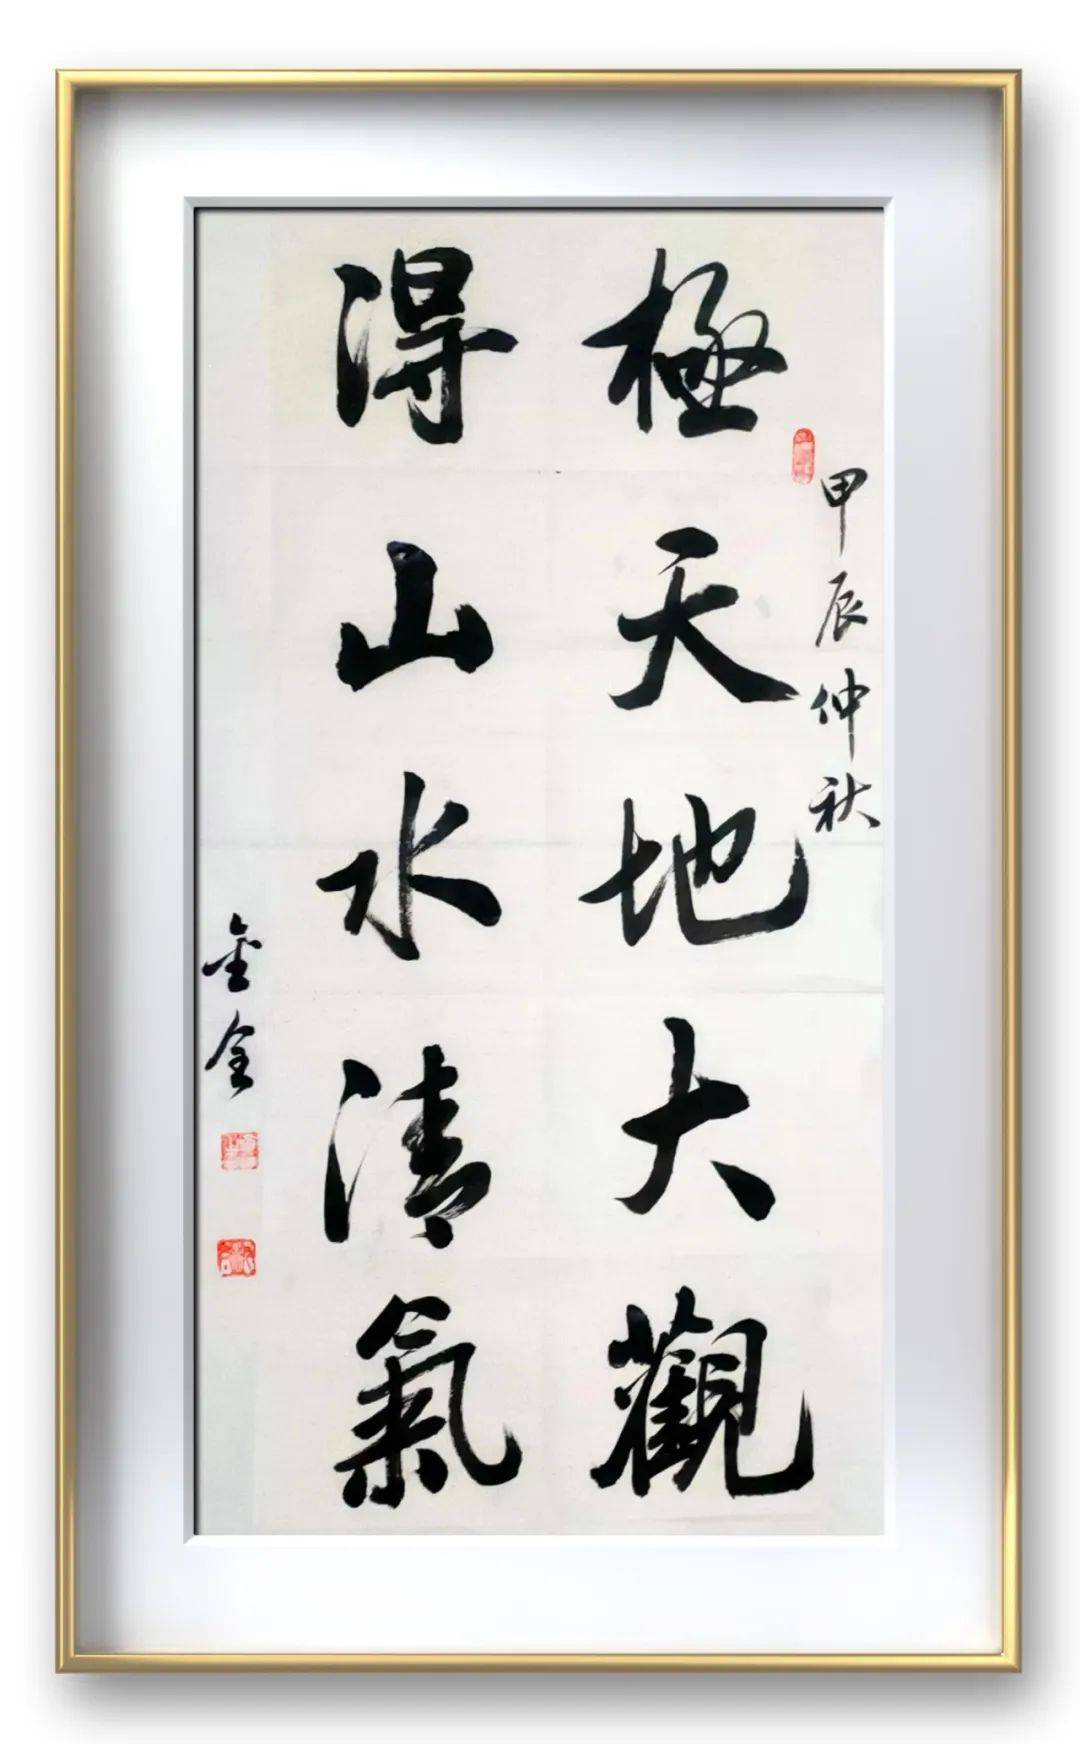 甲辰仲秋
極天地大觀
得山水清氣
金全